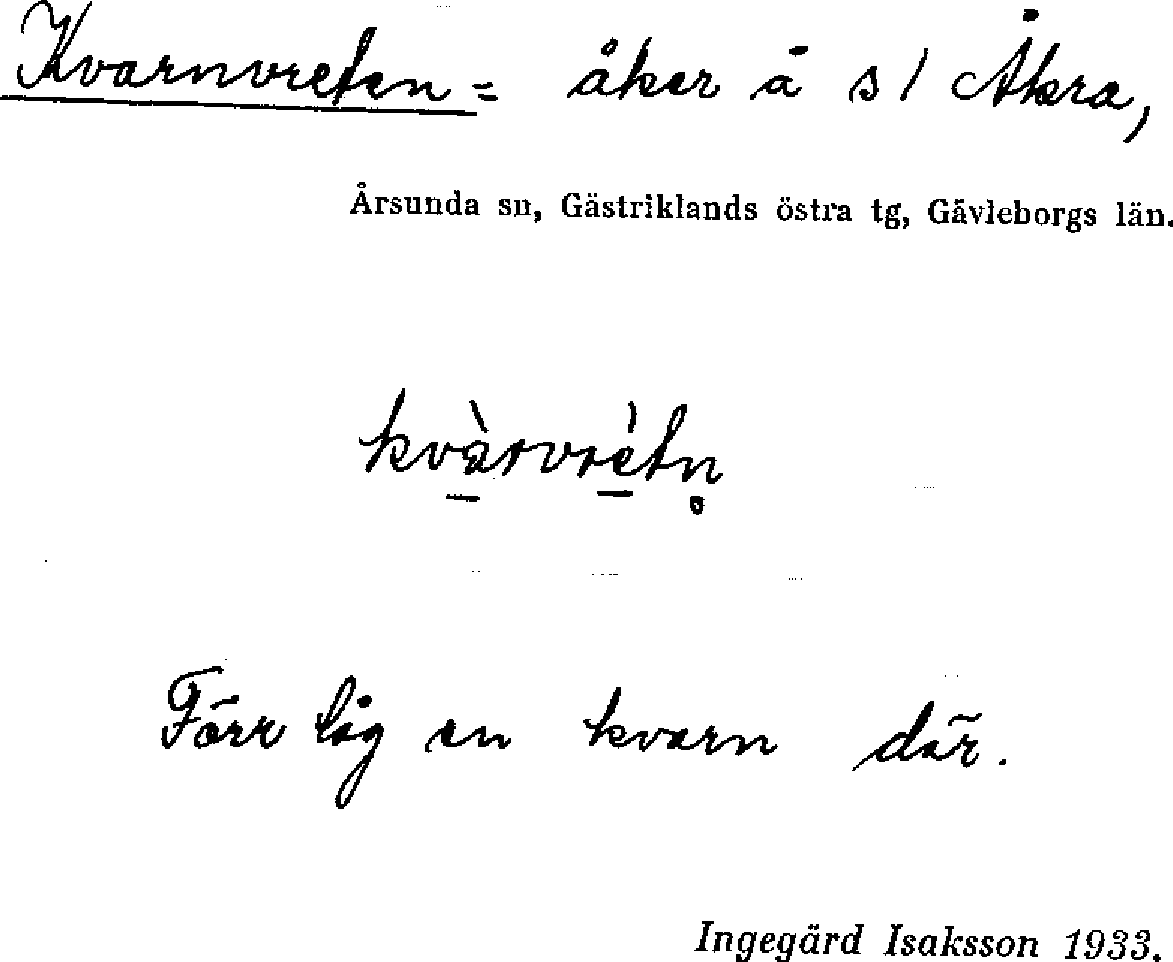 Kvarnvreten = åker å s/ Åkra,
Årsunda sn, Gästriklands östra tg, Gävleborgs län.
kvàrvrètn̥
Förr låg en kvarn där.
Ingegärd Isaksson 1933.